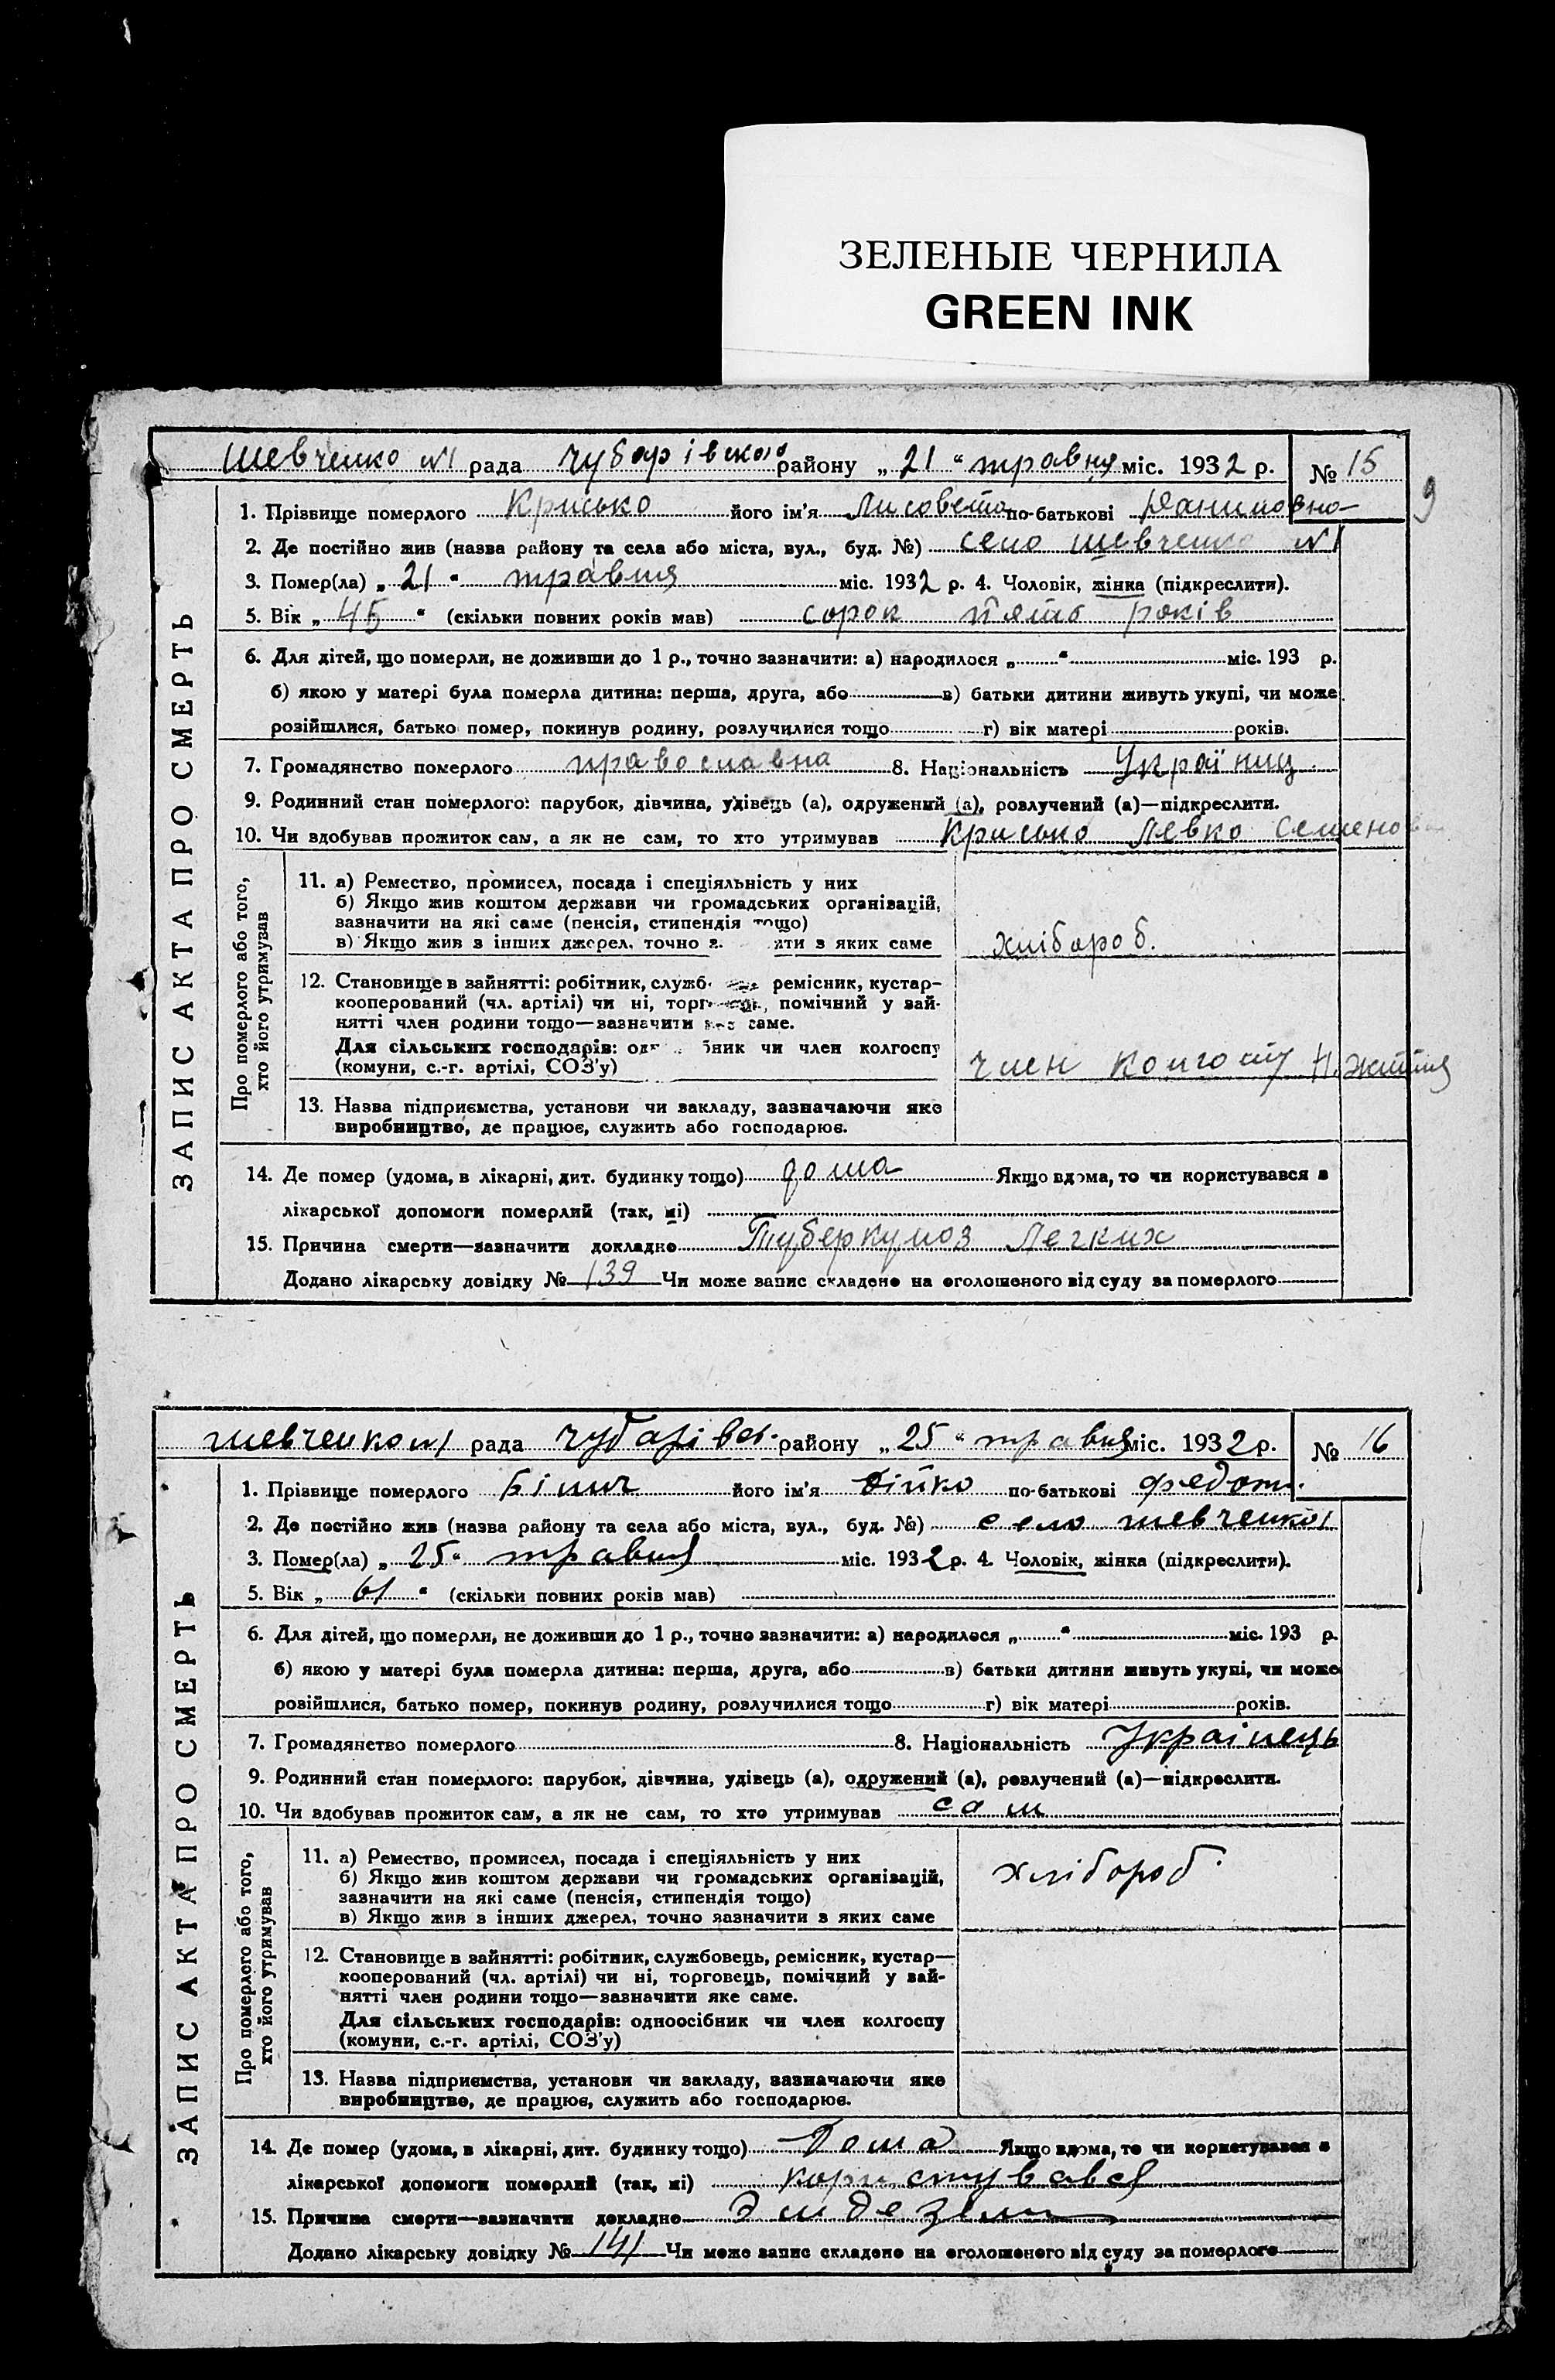 ЗЕЛЕНЫЕ ЧЕРНИЛА
GREEN INK
Шевченко №1 рада Чубарівского району „21“ травня міс. 1932 р. № 15
9
1. Прізвище померлого Крисько його ім'я Лисовета по-батькові Даниловна
2. Де постійно жив (назва району та села або міста, вул., буд. №) село Шевченко №1
3. Помер(ла) „21“ травня міс. 1932 р. 4. Чоловік, жінка (підкреслити).
5. Вік „45“ (скільки повних років мав) сорок пять років
6. Для дітей, що померли, не доживши до 1 р., точно зазначити: а) народилося „ “ міс. 193 р.
б) якою у матері була померла дитина: перша, друга, або в) батьки дитини живуть укупі, чи може
розійшлися, батько помер, покинув родину, розлучилися тощо г) вік матері років.
7. Громадянство померлого православна 8. Національність Україниц
9. Родинний стан померлого: парубок, дівчина, удівець (а), одружений (а), розлучений (а)—підкреслити.
10. Чи здобував прожиток сам, а як не сам, то хто утримував Крисько Левко Семенов
ЗАПИС АКТА ПРО СМЕРТЬ
Про померлого або того,
хто його утримував
11. а) Ремество, промисел, посада і спеціяльність у них
б) Якщо жив коштом держави чи громадських організацій,
зазначити на які саме (пенсія, стипендія тощо)
в) Якщо жив з інших джерел, точно з яких саме
хлібороб.
12. Становище в зайнятті: робітник, служб ремісник, кустар-
кооперований (чл. артілі) чи ні, помічний у зай-
нятті член родини тощо—зазначити саме.
Для сільських господарів: чи член колгоспу
(комуни, с.-г. артілі, СОЗ'у)
член колгоспу Н. життя
13. Назва підприємства, установи чи закладу, зазначаючи яке
виробництво, де працює, служить або господарює.
14. Де помер (удома, в лікарні, дит. будинку тощо) дома Якщо вдома, то чи користувався з
лікарської допомоги померлий (так, ні)
15. Причина смерти—зазначити докладно Туберкулоз Легких
Додано лікарську довідку № 139 Чи може запис складено на оголошеного від суду за померлого
Шевченко №1 рада Чубарівск. району „25“ травня міс. 1932 р. № 16
1. Прізвище померлого його ім'я по-батькові Федот.
2. Де постійно жив (назва району та села або міста, вул., буд. №) село Шевченко 1
3. Помер(ла) „25“ травня міс. 1932 р. 4. Чоловік, жінка (підкреслити).
5. Вік „61“ (скільки повних років мав)
6. Для дітей, що померли, не доживши до 1 р., точно зазначити: а) народилося „ “ міс. 193 р.
б) якою у матері була померла дитина: перша, друга, або в) батьки дитини живуть укупі, чи може
розійшлися, батько помер, покинув родину, розлучилися тощо г) вік матері років.
7. Громадянство померлого 8. Національність Українець
9. Родинний стан померлого: парубок, дівчина, удівець (а), одружений (а), розлучений (а)—підкреслити.
10. Чи здобував прожиток сам, а як не сам, то хто утримував сам
ЗАПИС АКТА ПРО СМЕРТЬ
Про померлого або того,
хто його утримував
11. а) Ремество, промисел, посада і спеціяльність у них
б) Якщо жив коштом держави чи громадських організацій,
зазначити на які саме (пенсія, стипендія тощо)
в) Якщо жив з інших джерел, точно зазначити з яких саме
хлібороб.
12. Становище в зайнятті: робітник, службовець, ремісник, кустар—
кооперований (чл. артілі) чи ні, торговець, помічний у зай-
нятті член родини тощо—зазначити яке саме.
Для сільських господарів: одноосібник чи член колгоспу
(комуни, с.-г. артілі, СОЗ'у)
13. Назва підприємства, установи чи закладу, зазначаючи яке
виробництво, де працює, служить або господарює.
14. Де помер (удома, в лікарні, дит. будинку тощо) Дома Якщо вдома, то чи користувався з
лікарської допомоги померлий (так, ні) користувався
15. Причина смерти—зазначити докладно
Додано лікарську довідку № 141 Чи може запис складено на оголошеного від суду за померлого